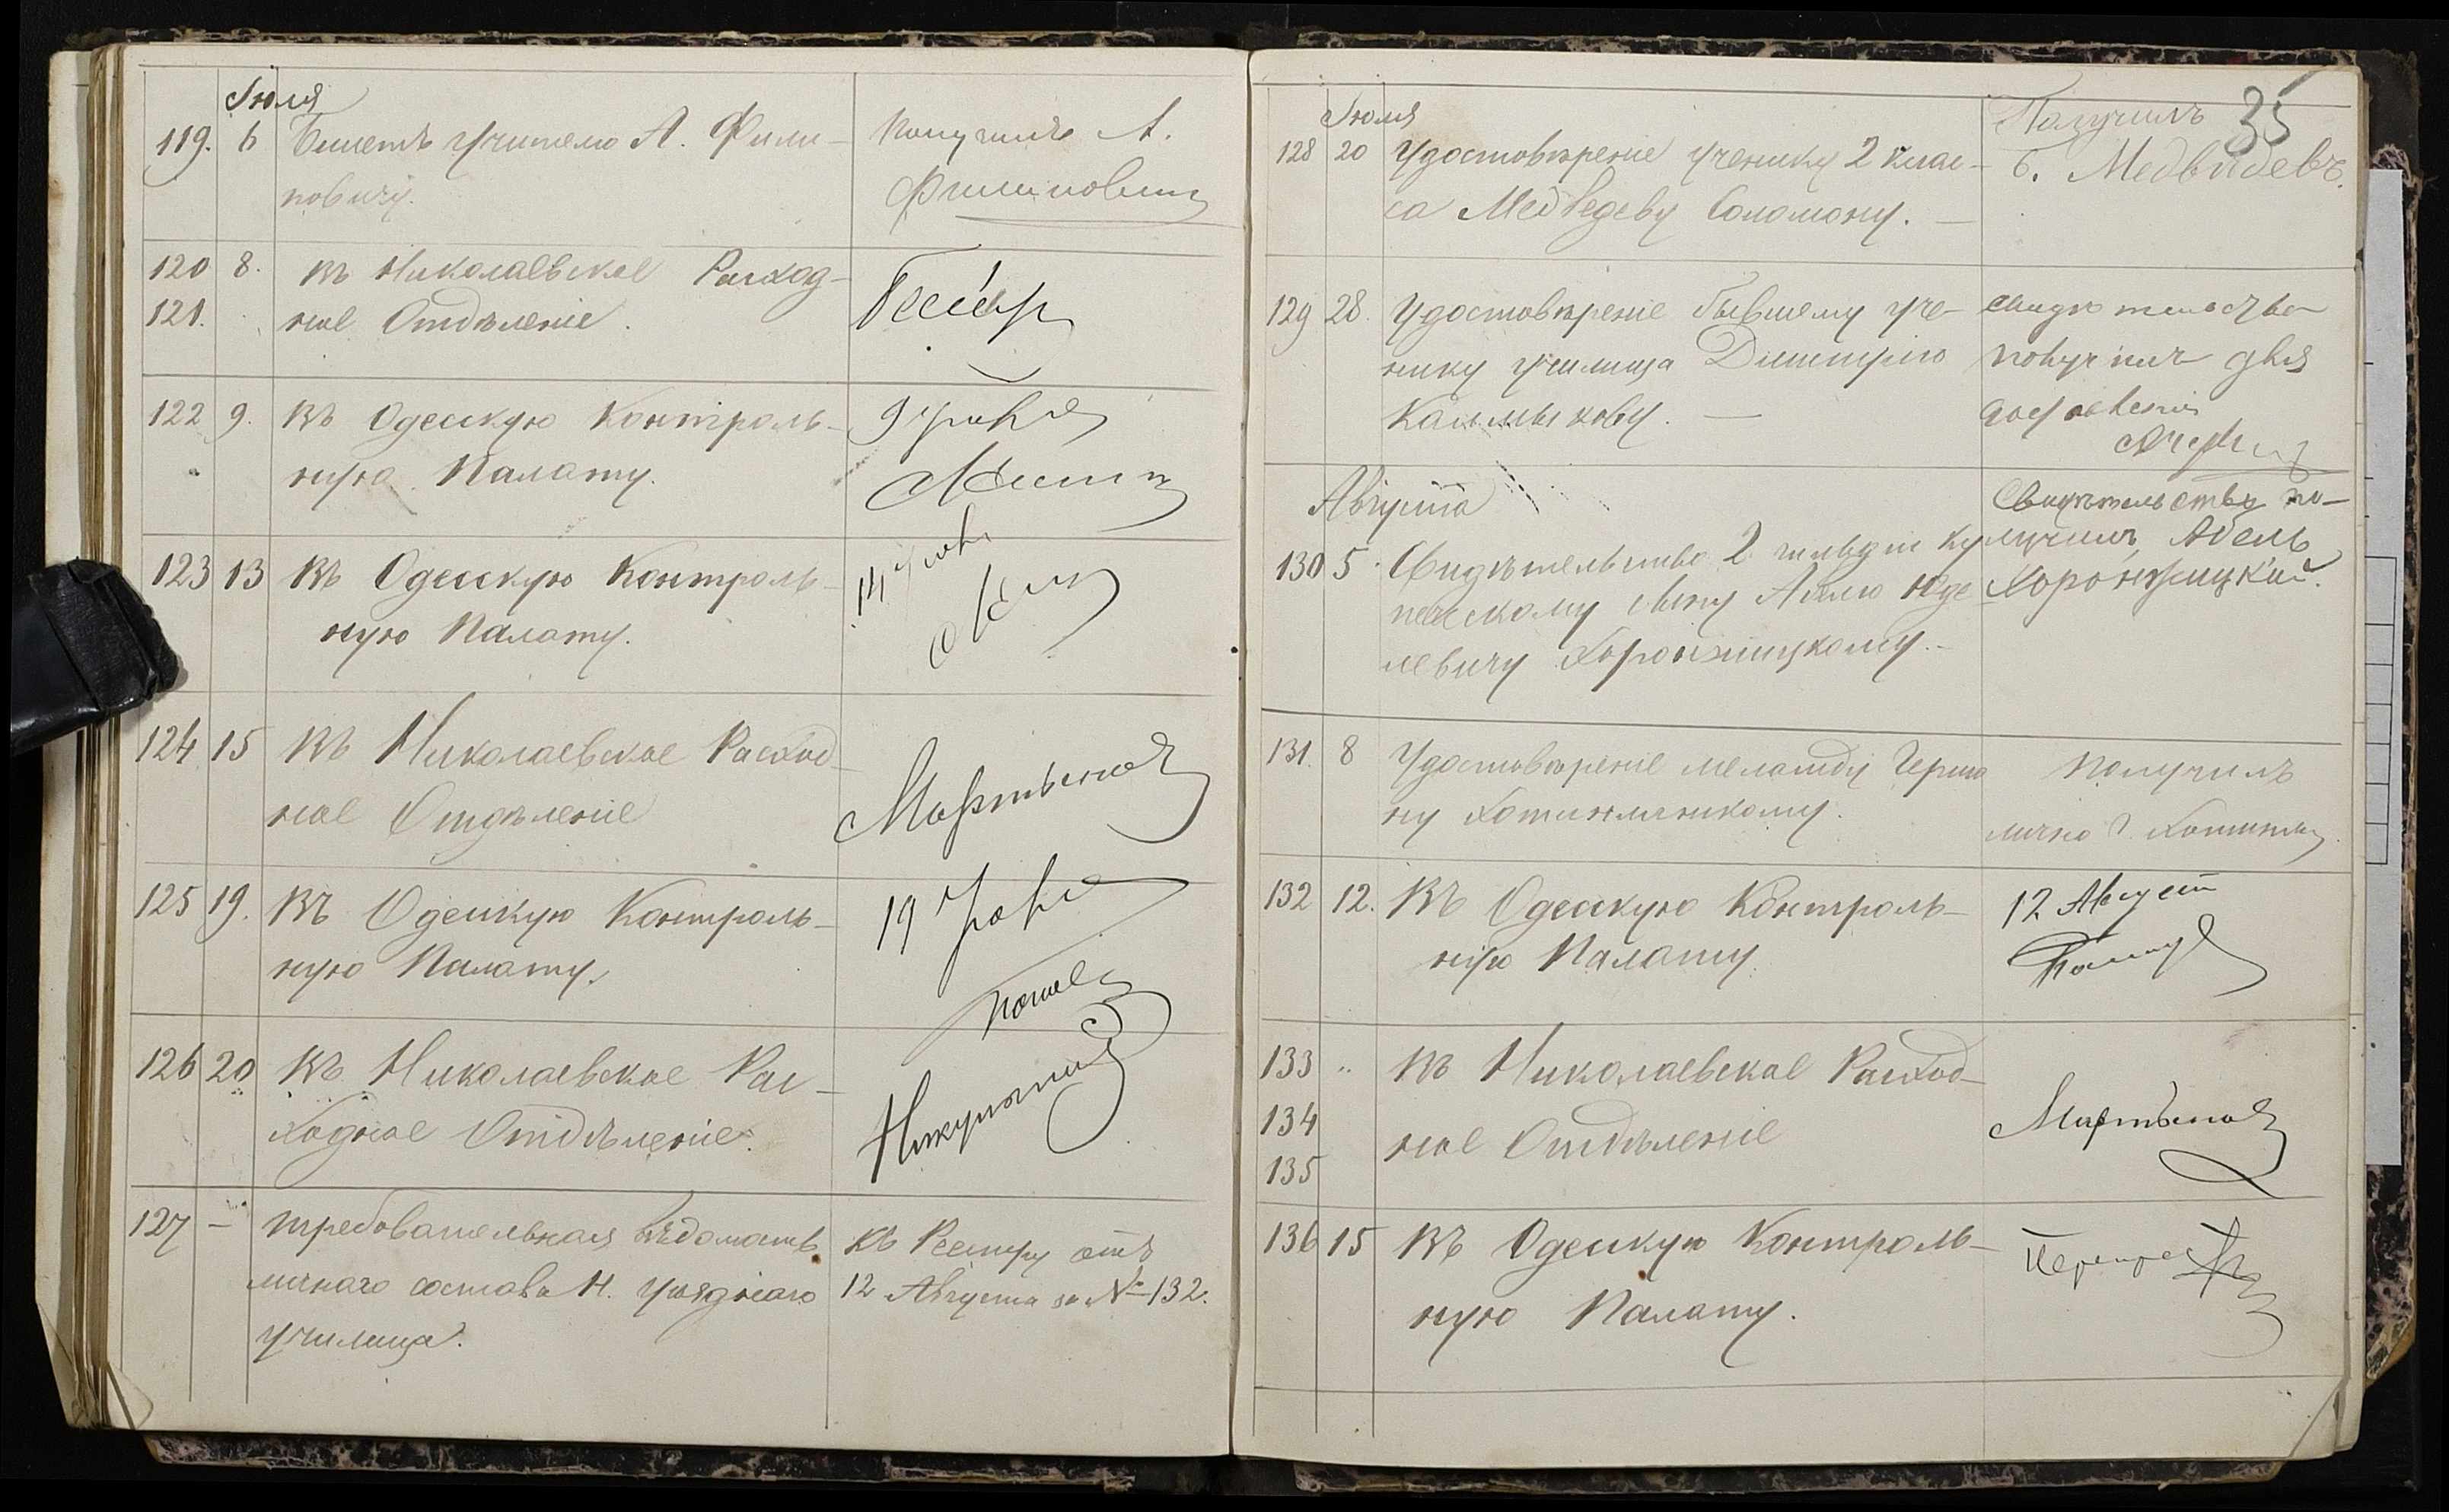 Іюля
119. 6 Билетъ учителю А. Фили-
повичу.
Получилъ А.
Филиповичъ
120 8. Въ Николаевское Расход-
121. ное Отдѣленіе.
122 9. Въ Одесскую Контроль-
ную Палату.
9 Іюля
123 13 Въ Одесскую Контроль-
ную Палату.
14 Іюля
124 15 Въ Николаевское Расход-
ное Отдѣленіе
Мартынов
125 19. Въ Одесскую Контроль-
ную Палату.
19 Іюля
126 20 Въ Николаевское Рас-
ходное Отдѣленіе.
127 - Требовательная вѣдомость
личнаго состава Н. уѣзднаго
училища.
Къ Реестру отъ
12 Августа за № 132.
35
Іюля
128 20 Удостовѣреніе ученику 2 клас-
са Медведеву Соломону. —
Получилъ
С. Медвѣдевъ.
129 28. Удостовѣреніе бывшему уче-
нику училища Димитрію
Калмыкову. —
свидѣтельство
получилъ для
Августа
130 5. Свидѣтельство 2 гильдіи ку-
печескому сыну Абелю Юде-
левичу Хоронжицкому.-
Свидѣтельство по-
лучилъ Абель
Хоронжицкий.
131. 8 Удостовѣреніе меламду Герша-
ну Хотимлянскому.
Получилъ
лично Г.
132 12. Въ Одесскую Контроль-
ную Палату.
12 Август
133 " Въ Николаевское Расход-
134 ное Отдѣленіе
135
Мартынов
136 15 Въ Одесскую Контроль-
ную Палату.